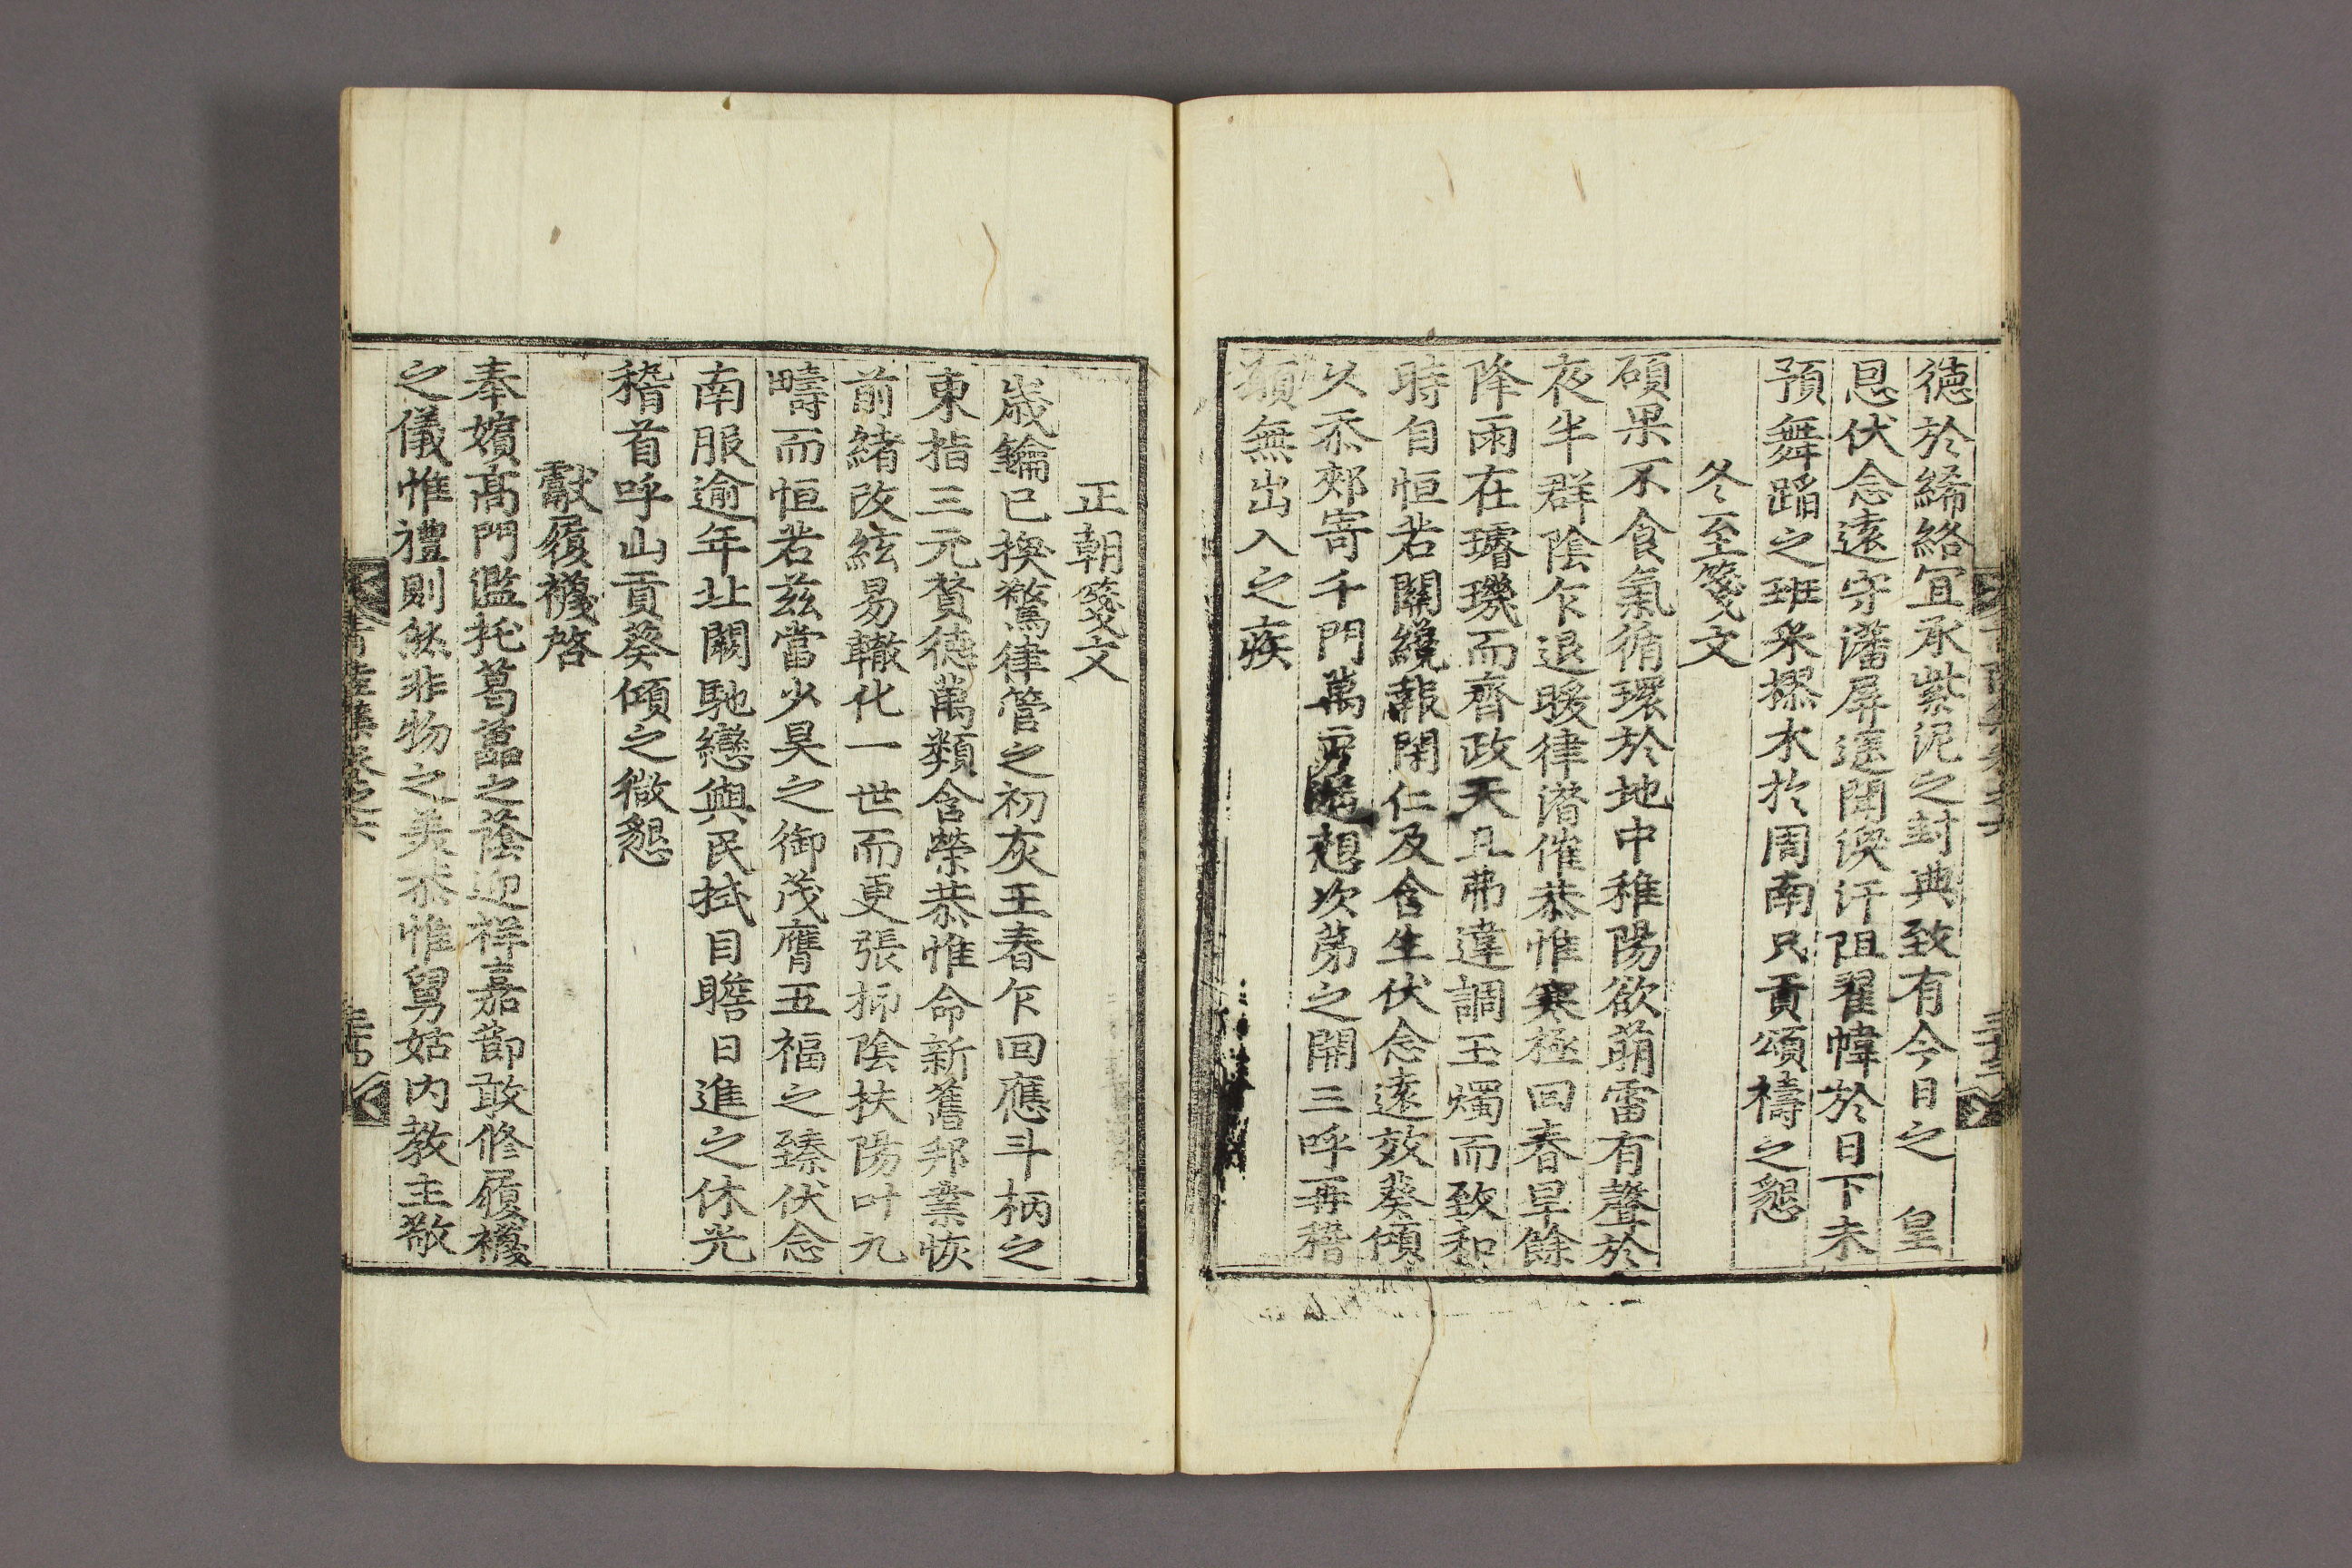 德於絺綌宜承紫泥之封典致有今日之　皇
恩伏念遠守藩屏遙聞渙汗阻翟幃於日下未
預舞蹈之班采樛木於周南只貢頌禱之懇
冬至箋文
碩果不食氣循環於地中稚陽欲萌雷有聲於
夜半群陰乍退暖律潛催恭惟寒極回春旱餘
降雨在璿璣而齊政天且弗違調玉燭而致和
時自恒若關纔報閉仁及含生伏念遠效葵傾
久忝郊寄千門萬戶想次第之開三呼再稽
顙無出入之疾
正朝箋文
歲鑰已換驚律管之初灰王春乍回應斗柄之
東指三元贊德萬類含榮恭惟命新舊邦業恢
前緒改絃易轍化一世而更張抑陰扶陽叶九
疇而恒若茲當少昊之御茂膺五福之臻伏念
南服逾年北闕馳戀與民拭目瞻日進之休光
稽首呼山貢葵傾之微懇
獻履襪啓
奉嬪高門濫托葛藟之蔭迎祥嘉節敢修履襪
之儀惟禮則然非物之美恭惟舅姑內敎主敬